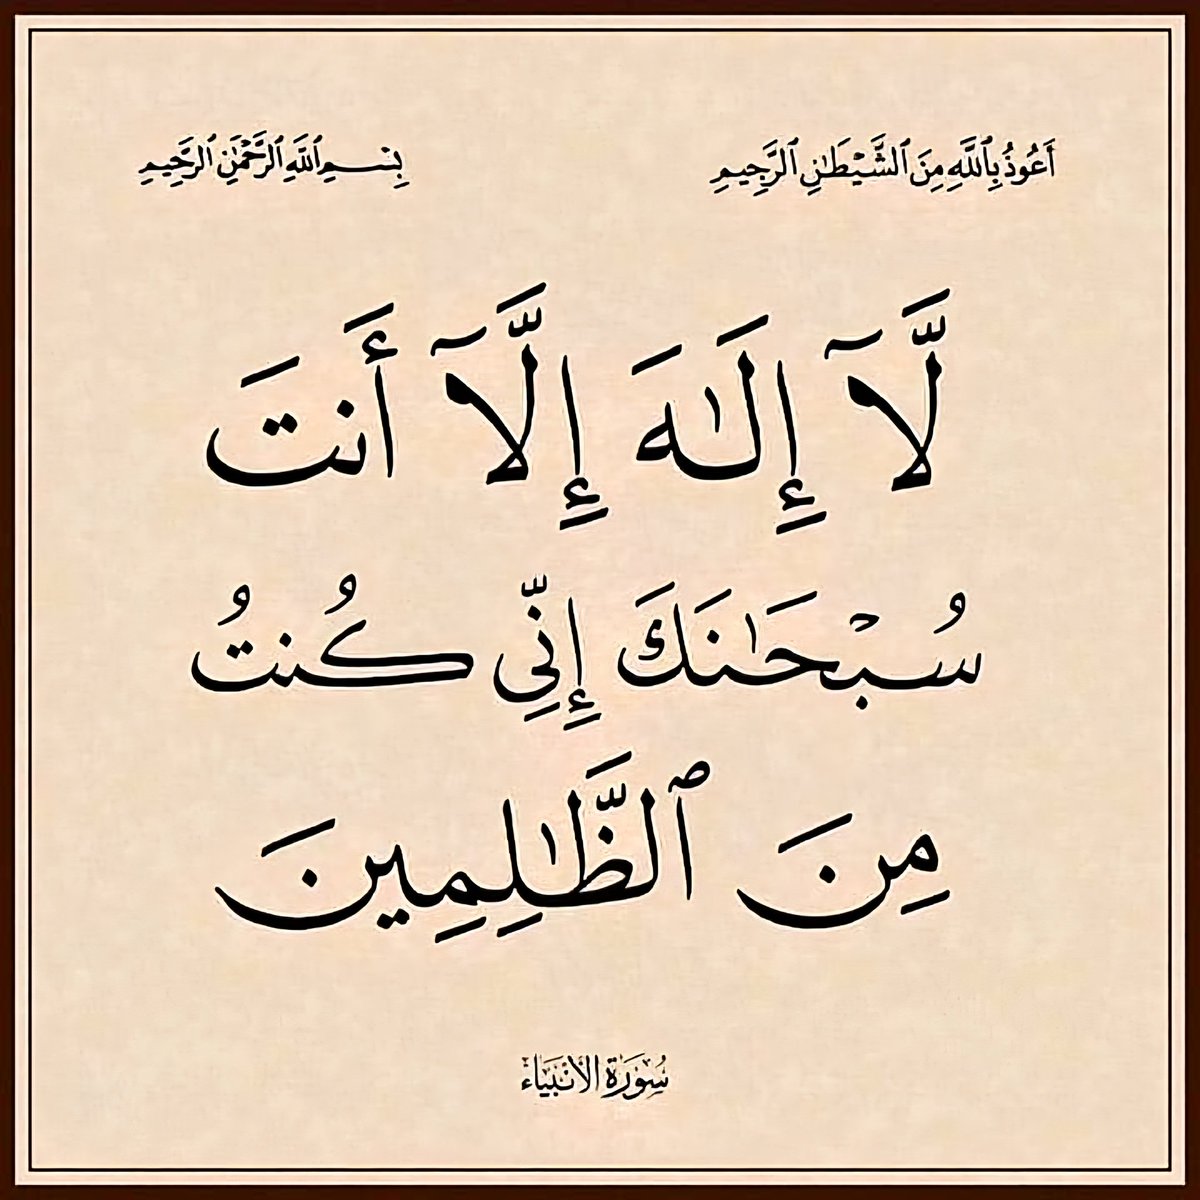 أَعُوذُ بِٱللَّهِ مِنَ ٱلشَّيْطَـٰنِ ٱلرَّجِيمِ
بِسْمِ ٱللَّهِ ٱلرَّحْمَـٰنِ ٱلرَّحِيمِ
لَّآ إِلَـٰهَ إِلَّآ أَنتَ
سُبْحَـٰنَكَ إِنِّى كُنتُ
مِنَ ٱلظَّـٰلِمِينَ
سُوْرَةُ الْأَنْبِيَاءِ